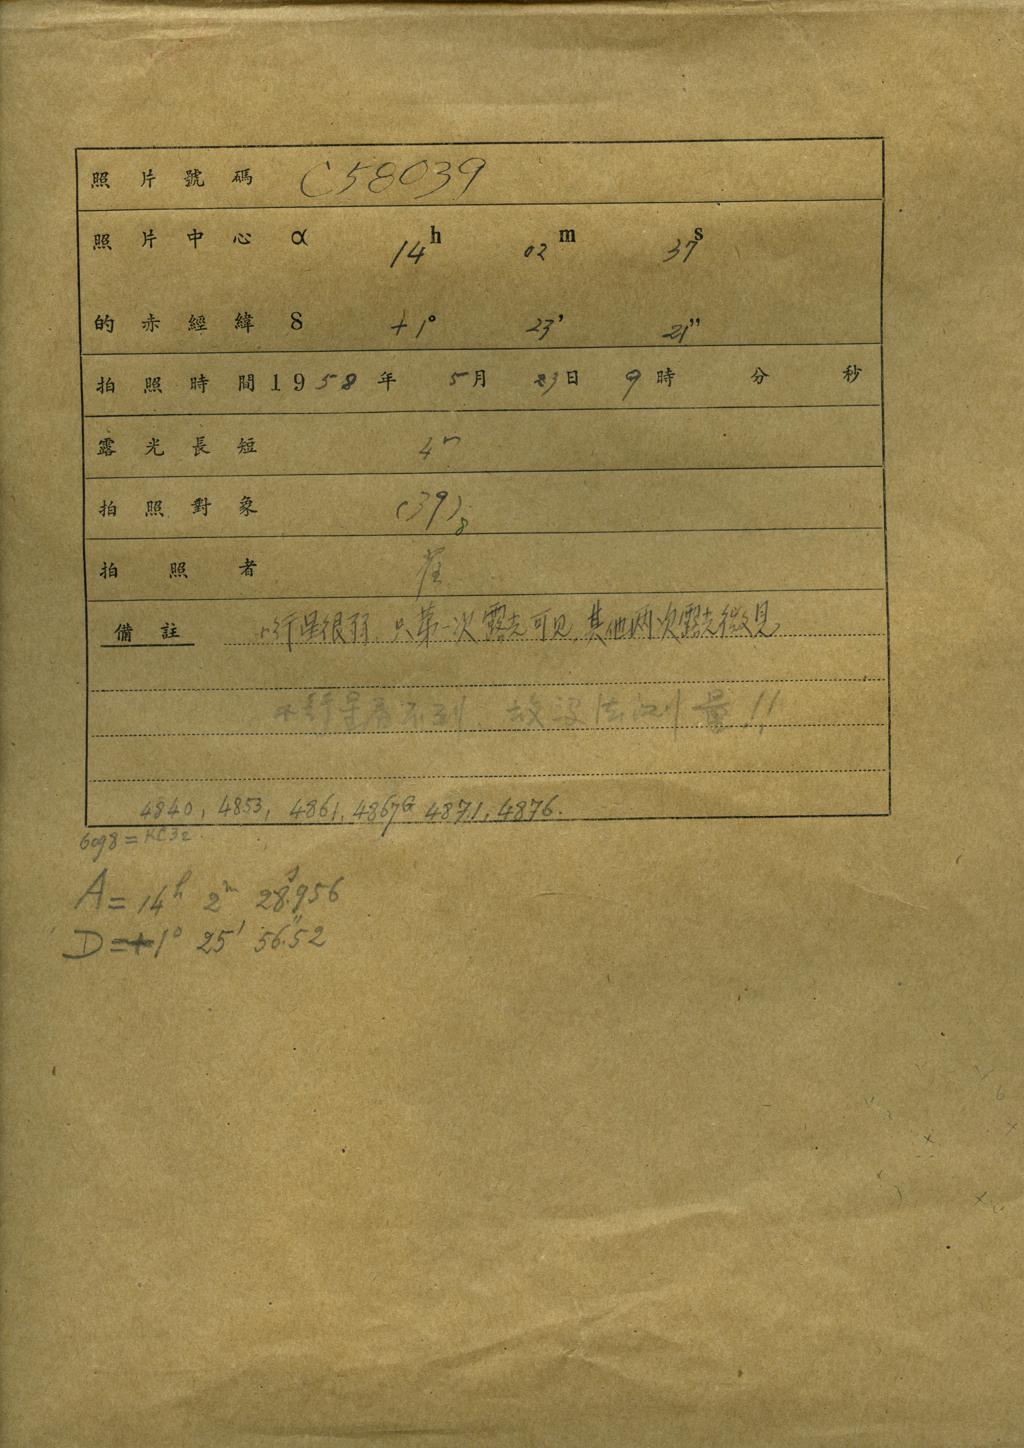 照片號碼 C58039
照片中心 α 14h 02m 37s
的赤經緯 δ +1° 23' 21"
拍照時間 1958年 5月 23日 9時 分 秒
露光長短 4m
拍照對象 (39)8
拍照者 崔
備註 小行星很弱,只第一次露光可见,其他两次露光微見
小行星看不到,故没法測量!!
4840, 4853, 4861, 4867G 4871, 4876.
A = 14h 2m 28s.956
D = +1° 25' 56".52